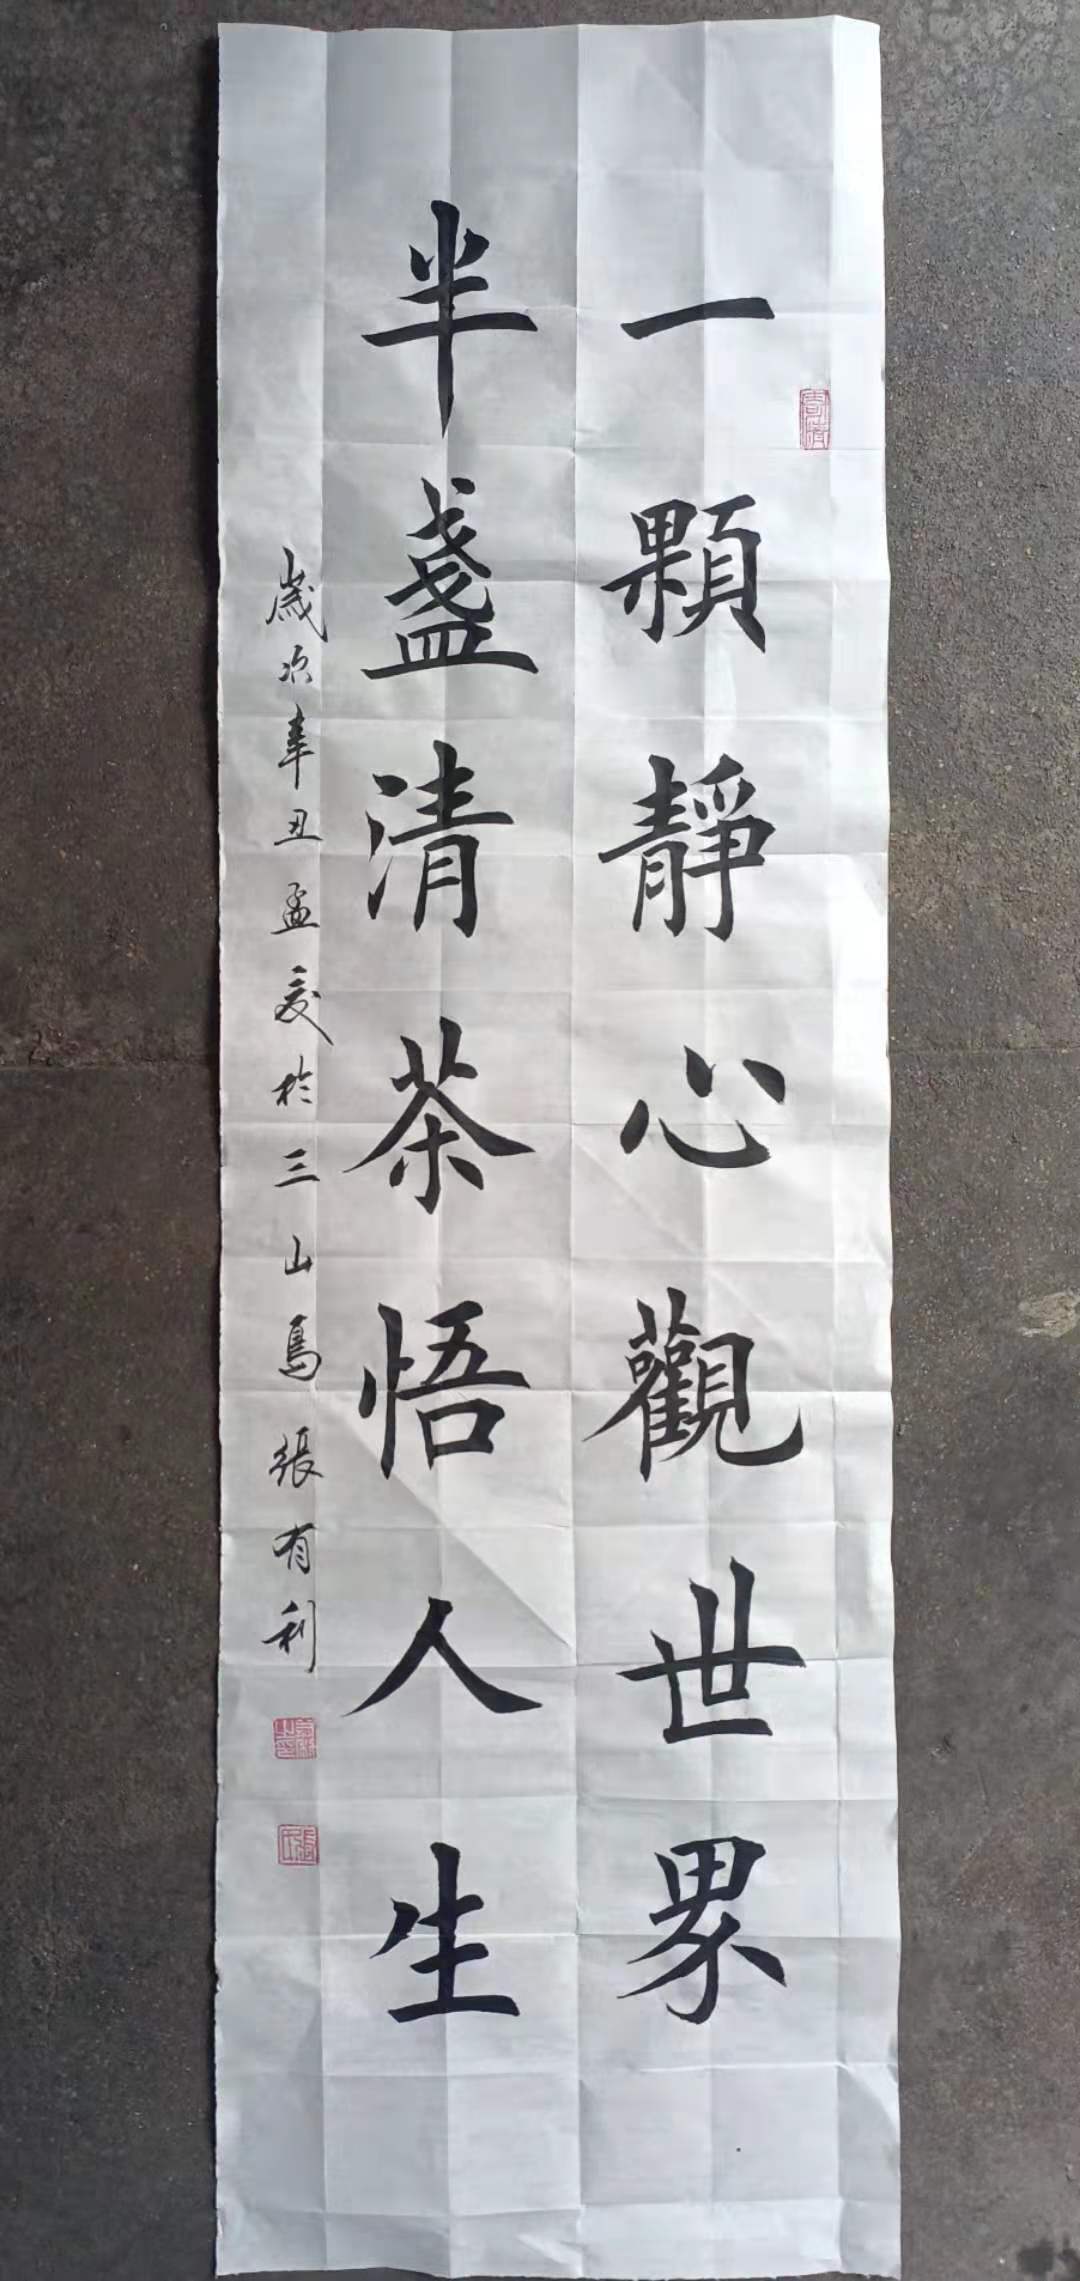 一顆靜心觀世界
半盞清茶悟人生
歲次辛丑孟夏於三山島張有利